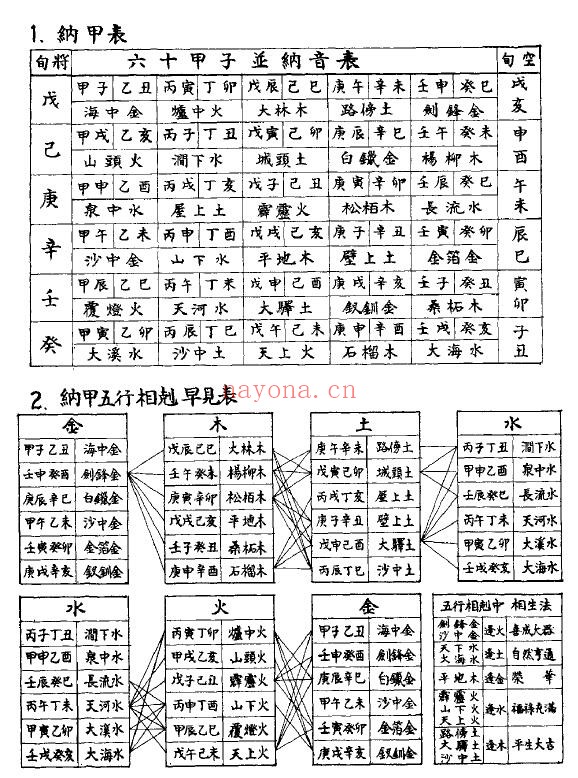 1. 納甲表
旬將 六十甲子並納音表 旬空
戊 甲子 乙丑 丙寅 丁卯 戊辰 己巳 庚午 辛未 壬申 癸巳 戌亥
海中金 爐中火 大林木 路傍土 劍鋒金
己 甲戌 乙亥 丙子 丁丑 戊寅 己卯 庚辰 辛巳 壬午 癸未 申酉
山頭火 澗下水 城頭土 白鑞金 楊柳木
庚 甲申 乙酉 丙戌 丁亥 戊子 己丑 庚寅 辛卯 壬辰 癸巳 午未
泉中水 屋上土 霹靂火 松柏木 長流水
辛 甲午 乙未 丙申 丁酉 戊戌 己亥 庚子 辛丑 壬寅 癸卯 辰巳
沙中金 山下水 平地木 壁上土 金箔金
壬 甲辰 乙巳 丙午 丁未 戊申 己酉 庚戌 辛亥 壬子 癸丑 寅卯
覆燈火 天河水 大驛土 釵釧金 桑柘木
癸 甲寅 乙卯 丙辰 丁巳 戊午 己未 庚申 辛酉 壬戌 癸亥 子丑
大溪水 沙中土 天上火 石榴木 大海水
nayona.cn
2. 納甲五行相剋早見表
金
甲子乙丑 海中金
壬申癸酉 劍鋒金
庚辰辛巳 白鑞金
甲午乙未 沙中金
壬寅癸卯 金箔金
庚戌辛亥 釵釧金
木
戊辰己巳 大林木
壬午癸未 楊柳木
庚寅辛卯 松柏木
戊戌己亥 平地木
壬子癸丑 桑柘木
庚申辛酉 石榴木
土
庚午辛未 路傍土
戊寅己卯 城頭土
丙戌丁亥 屋上土
庚子辛丑 壁上土
戊申己酉 大驛土
丙辰丁巳 沙中土
水
丙子丁丑 澗下水
甲申乙酉 泉中水
壬辰癸巳 長流水
丙午丁未 天河水
甲寅乙卯 大溪水
壬戌癸亥 大海水
水
丙子丁丑 澗下水
甲申乙酉 泉中水
壬辰癸巳 長流水
丙午丁未 天河水
甲寅乙卯 大溪水
壬戌癸亥 大海水
火
丙寅丁卯 爐中火
甲戌乙亥 山頭火
戊子己丑 霹靂火
丙申丁酉 山下火
甲辰乙巳 覆燈火
戊午己未 天上火
金
甲子乙丑 海中金
壬申癸酉 劍鋒金
庚辰辛巳 白鑞金
甲午乙未 沙中金
壬寅癸卯 金箔金
庚戌辛亥 釵釧金
五行相剋中 相生法
劍鋒金
沙中金 逢火 喜成大器
天下水
大海水 逢土 自然亨通
平地木 逢金 榮華
霹靂火
山下火 逢水 福祿充滿
天上火
路傍土
大驛土 逢木 平生大吉
沙中土